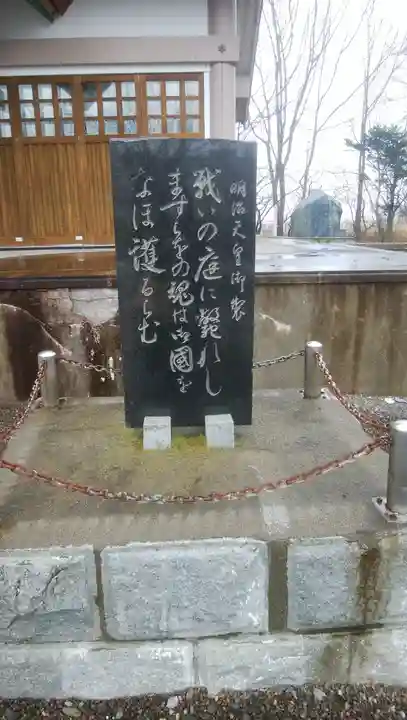 明治天皇御製
戦いの庭に斃れし
ますらをの魂は御國を
なほ護るらむ